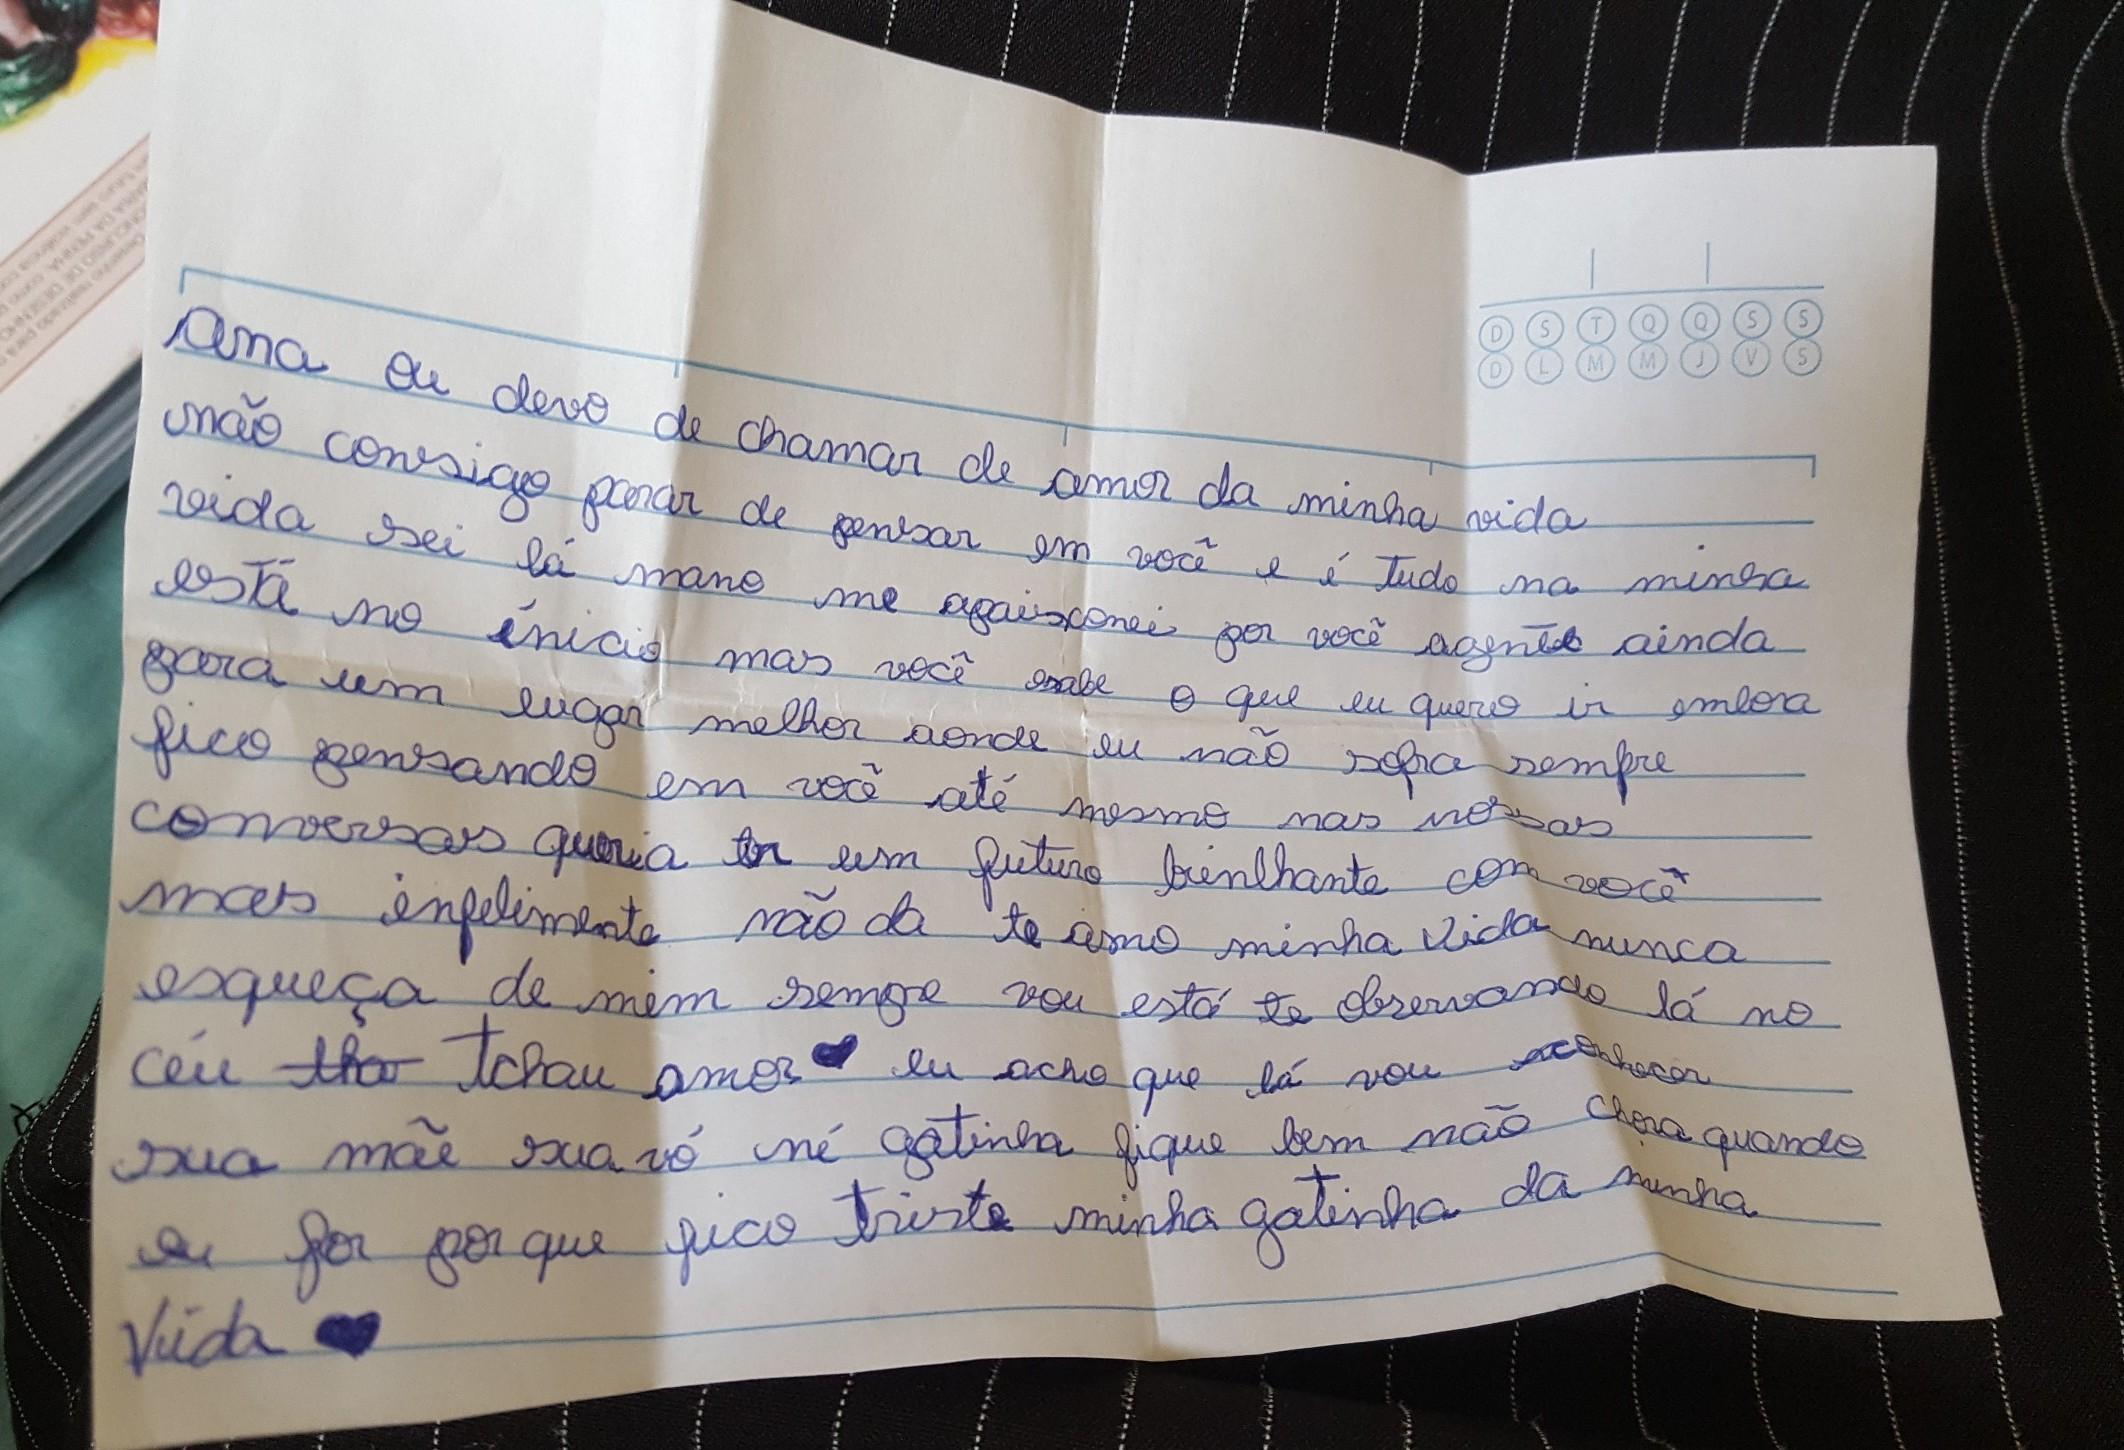 D S T Q Q S S
D L M M J V S
Ana ou devo de chamar de amor da minha vida
não consigo parar de pensar em você e é tudo na minha
vida sei lá mano me apaixonei por você agente ainda
está no início mas você sabe o que eu quero ir embora
para um lugar melhor aonde eu não sofra sempre
fico pensando em você até mesmo nas nossas
conversas queria ter um futuro brilhante com você
mas infelimente não da te amo minha vida nunca
esqueça de mim sempre vou está te observando lá no
céu tha Tchau amor eu acho que lá vou conhecer
sua mãe sua vó né gatinha fique bem não chora quando
eu for por que fico triste minha gatinha da minha
Vida